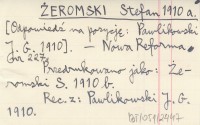 ŻEROMSKI Stefan 1910 a.
[Odpowiedź na pozycję: Pawlikowski
J. G. 1910]. — Nowa Reforma
nr 227.
Przedrukowano jako: Że-
romski S. 1910 b.
Rec. z: Pawlikowski J. G.
1910.